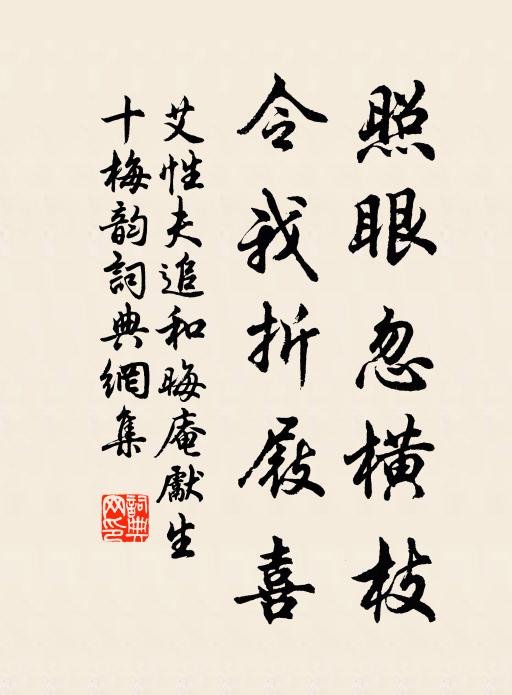 照眼忽横枝
令我折屐喜
艾性夫追和晦庵獻生
十梅韵詞典網集
詞典网印